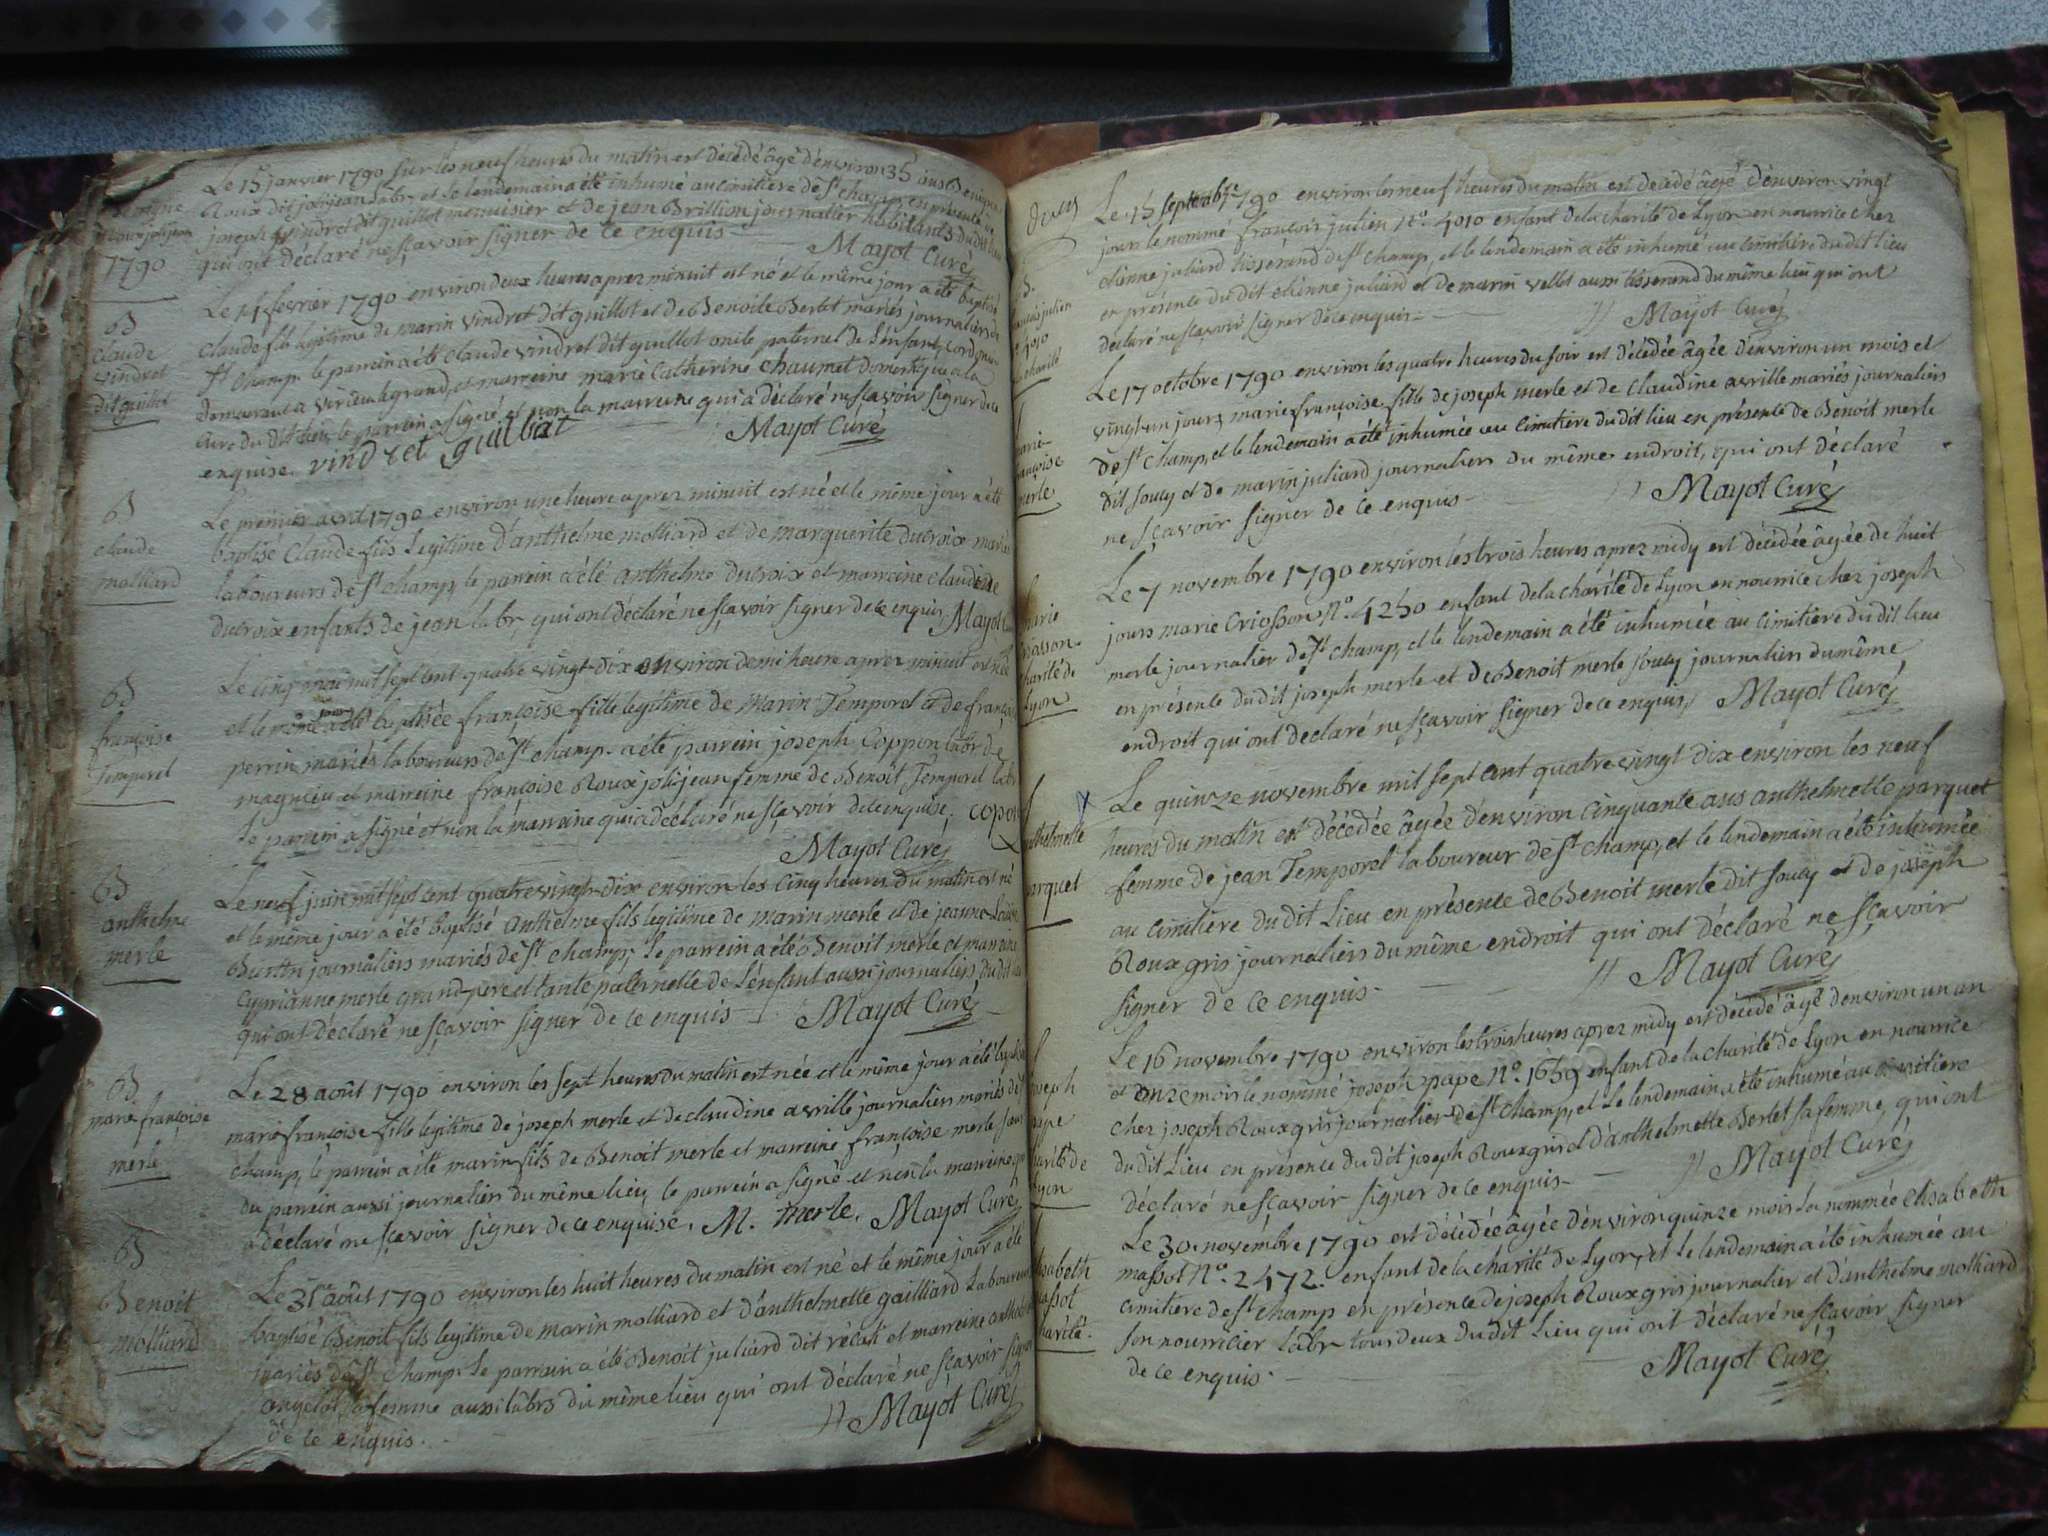 Le 15 janvier 1790 sur les neuf heures du matin est décédé âgé d'environ 35 ans Benigne
Roux dit joli jean labr. et le lendemain a été inhumé au cimitiere de St champ, en présence de
joseph vindret dit guillot menuisier et de jean Brillion journalier habitants du dit lieu
qui ont déclaré ne sçavoir signer de ce enquis
Mayot Curé
Benigne
Roux joli jean
1790
Le 14 fevrier 1790 environ deux heures aprez minuit est né et le même jour a été baptisé
Claude fils légitime de marin vindret dit guillot et de Benoite Berlet mariés journaliers de
St champ. le parrein a été Claude vindret dit guillot oncle paternel de l'enfant, cordonnier
demeurant a virieu le grand, et marreine marie Catherine Chaumet domestique a la
Cure du dit lieu, le parrein a signé et non la marreine qui a déclaré ne sçavoir signer de ce
enquise. vindret guilliot
Mayot Curé
B
claude
vindret
dit guillot
Le premier avril 1790 environ une heure aprez minuit est né et le même jour a été
baptisé Claude fils Legitime d'anthelme molliard et de marguerite ducroix mariés
laboureurs de St champ, le parrein a été anthelme ducroix et marreine claudine
ducroix enfants de jean labr. qui ont déclaré ne sçavoir signer de ce enquis, Mayot
B
claude
molliard
Le cinq mai mil sept cent quatre vingt dix environ demi heure aprez minuit est née
et le même jour a été baptisée françoise fille legitime de Marin Temporel et de françoise
perrin mariés laboureurs de St champ. a été parrein joseph Coppon labr de
magnieu et marreine françoise Roux joli jean femme de Benoit Temporel labr
le parrein a signé et non la marreine qui a déclaré ne sçavoir de ce enquise. copon
Mayot Curé
B
françoise
Temporel
Le neuf juin mil sept cent quatre vingt dix environ les cinq heures du matin est né
et le même jour a été baptisé anthelme fils legitime de marin merle et de jeanne Louise
Burtin journaliers mariés de St champ, Le parrein a été Benoit merle et marreine
Cyprianne merle grand pere et tante paternelle de l'enfant aussi journaliers du dit lieu
qui ont déclaré ne sçavoir signer de ce enquis
Mayot Curé
B
anthelme
merle
Le 28 août 1790 environ les sept heures du matin est née et le même jour a été baptisée
marie françoise fille legitime de joseph merle et de claudine avrille journaliers mariés de St
champ, le parrein a été marin fils de Benoit merle et marreine françoise merle sœur
du parrein aussi journaliers du même lieu, le parrein a signé et non la marreine qui
a déclaré ne sçavoir signer de ce enquise. M. merle. Mayot Curé
B
marie françoise
merle
Le 31e août 1790 environ les huit heures du matin est né et le même jour a été
baptisé Benoit fils legitime de marin molliard et d'anthelmette gailliard Laboureurs
mariés de St champ. Le parrain a été Benoit juliard dit et marreine
sa femme aussi labrs du même lieu qui ont déclaré ne sçavoir signer
de ce enquis.
Mayot Curé
B
Benoit
molliard
Le 15 septembre 1790 environ les neuf heures du matin est décédé âgé d'environ vingt
jours le nommé françois julien No. 4010 enfant de la charité de Lyon en nourrice chez
etienne juliard tisserand de St champ, et le lendemain a été inhumé au cimitiere du dit lieu
en présence du dit etienne juliard et de marin vellet aussi tisserand du même lieu qui ont
déclaré ne sçavoir signer de ce enquis
Mayot Curé
julien
4010
charité
Le 17 octobre 1790 environ les quatre heures du soir est décédée âgée d'environ un mois et
vingt un jours, marie françoise fille de joseph merle et de Claudine avrille mariés journaliers
de St champ, et le lendemain a été inhumée au cimitiere du dit lieu en présence de Benoit merle
dit soucy et de marin juliard journaliers du même endroit, qui ont déclaré
ne sçavoir signer de ce enquis
Mayot Curé
marie
françoise
merle
Le 7 novembre 1790 environ les trois heures aprez midy est décédée âgée de huit
jours marie Criosson No. 4250 enfant de la charité de Lyon en nourrice chez joseph
merle journalier de St champ, et le lendemain a été inhumée au cimitiere du dit lieu
en présence du dit joseph merle et de Benoit merle soucy journaliers du même
endroit qui ont déclaré ne sçavoir signer de ce enquis, Mayot Curé
marie
charité de
Lyon
Le quinze novembre mil sept cent quatre vingt dix environ les neuf
heures du matin est décédée âgée d'environ cinquante ans anthelmette parquet
femme de jean Temporel laboureur de St champ, et le lendemain a été inhumée
au cimitiere du dit Lieu en présence de Benoit merle dit soucy et de joseph
Roux gris journaliers du même endroit qui ont déclaré ne sçavoir
signer de ce enquis
Mayot Curé
anthelmette
parquet
Le 16 novembre 1790 environ les trois heures aprez midy est décédé âgé d'environ un an
et onze mois le nommé joseph pape No. 1659 enfant de la charité de Lyon en nourrice
chez joseph Roux gris journalier de St champ, et le lendemain a été inhumé au cimitiere
du dit Lieu en présence du dit joseph Roux gris et d'anthelmette Berlet sa femme, qui ont
déclaré ne sçavoir signer de ce enquis
Mayot Curé
joseph
pape
charité de
Lyon
Le 30 novembre 1790 est décédée âgée d'environ quinze mois la nommée elisabeth
massot No. 2472. enfant de la charité de Lyon, et le lendemain a été inhumée au
cimitiere de St champ en présence de joseph Roux gris journalier et d'anthelme molliard
son nourricier labr tous deux du dit Lieu qui ont déclaré ne sçavoir signer
de ce enquis
Mayot Curé
elisabeth
massot
charité